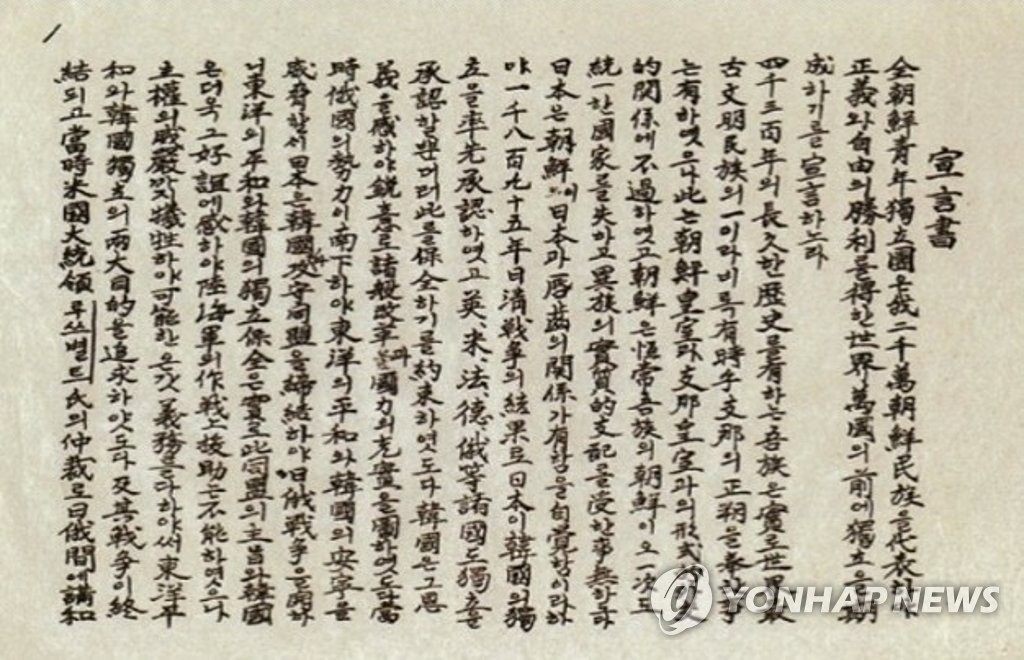 宣言書
全朝鮮青年獨立團은我二千萬朝鮮民族을代表하야
正義와自由의勝利를得한世界萬國의前에獨立을期
成하기를宣言하노라
四千三百年의長久한歷史를有하는吾族은實로世界最
古文明民族의一이라비록有時乎支那의正朔을奉한事
는有하엿으나此는朝鮮皇室과支那皇室과의形式的外交
的關係에不過하엿고朝鮮은恒常吾族의朝鮮이오一次도
統一한國家를失하고異族의實質的支配를受한事無하다
日本은朝鮮이日本과唇齒의關係가有함을自覺함이라하
야一千八百九十五年日淸戰爭의結果로日本이韓國의獨
立을率先承認하엿고英、米、法、德、俄等諸國도獨立을
承認할뿐더러此를保全하기를約束하엿도다韓國은그恩
義를感하야銳意로諸般改革과國力의充實을圖하엿도다當
時俄國의勢力이南下하야東洋의平和와韓國의安寧을
威脅할새日本은韓國과攻守同盟을締結하야日俄戰爭을開하
니東洋의平和와韓國의獨立保全은實로此同盟의主旨와韓國
은더욱그好誼에感하야陸海軍의作戰上援助는不能하엿으나
主權의威嚴까지犧牲하야可能한온갓義務를다하야써東洋平
和와韓國獨立의兩大目的을追求하얏도다及其戰爭이終
結되고當時米國大統領루쓰벨트氏의仲裁로日俄間에講和
YONHAP NEWS